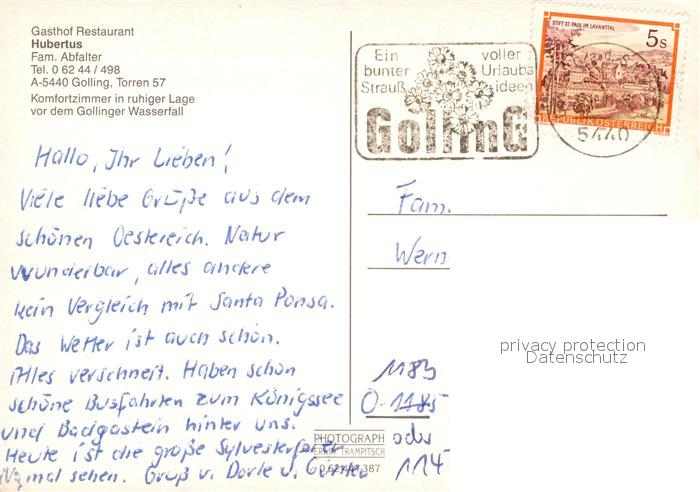 Gasthof Restaurant
Hubertus
Fam. Abfalter
Tel. 0 62 44 / 498
A-5440 Golling, Torren 57
Komfortzimmer in ruhiger Lage
vor dem Gollinger Wasserfall
Hallo, Ihr Lieben!
Viele liebe Grüße aus dem
schönen Oestereich. Natur
wunderbar, alles andere
kein Vergleich mit Santa Ponsa.
Das Wetter ist auch schön.
Alles verschneit. Haben schon
schöne Busfahrten zum Königssee
und Badgastein hinter uns.
Heute ist die große Sylvesterfeier
mal sehen. Gruß v. Dorle u.
PHOTOGRAPH
TRAMPITSCH
387
Ein voller
bunter Urlaubs
Strauß ideen
Golling
STIFT ST. PAUL IM LAVANTTAL
5 S
REPUBLIK ÖSTERREICH
5440
Fam.
Wern
privacy protection
Datenschutz
1183
O-1185
oder
114